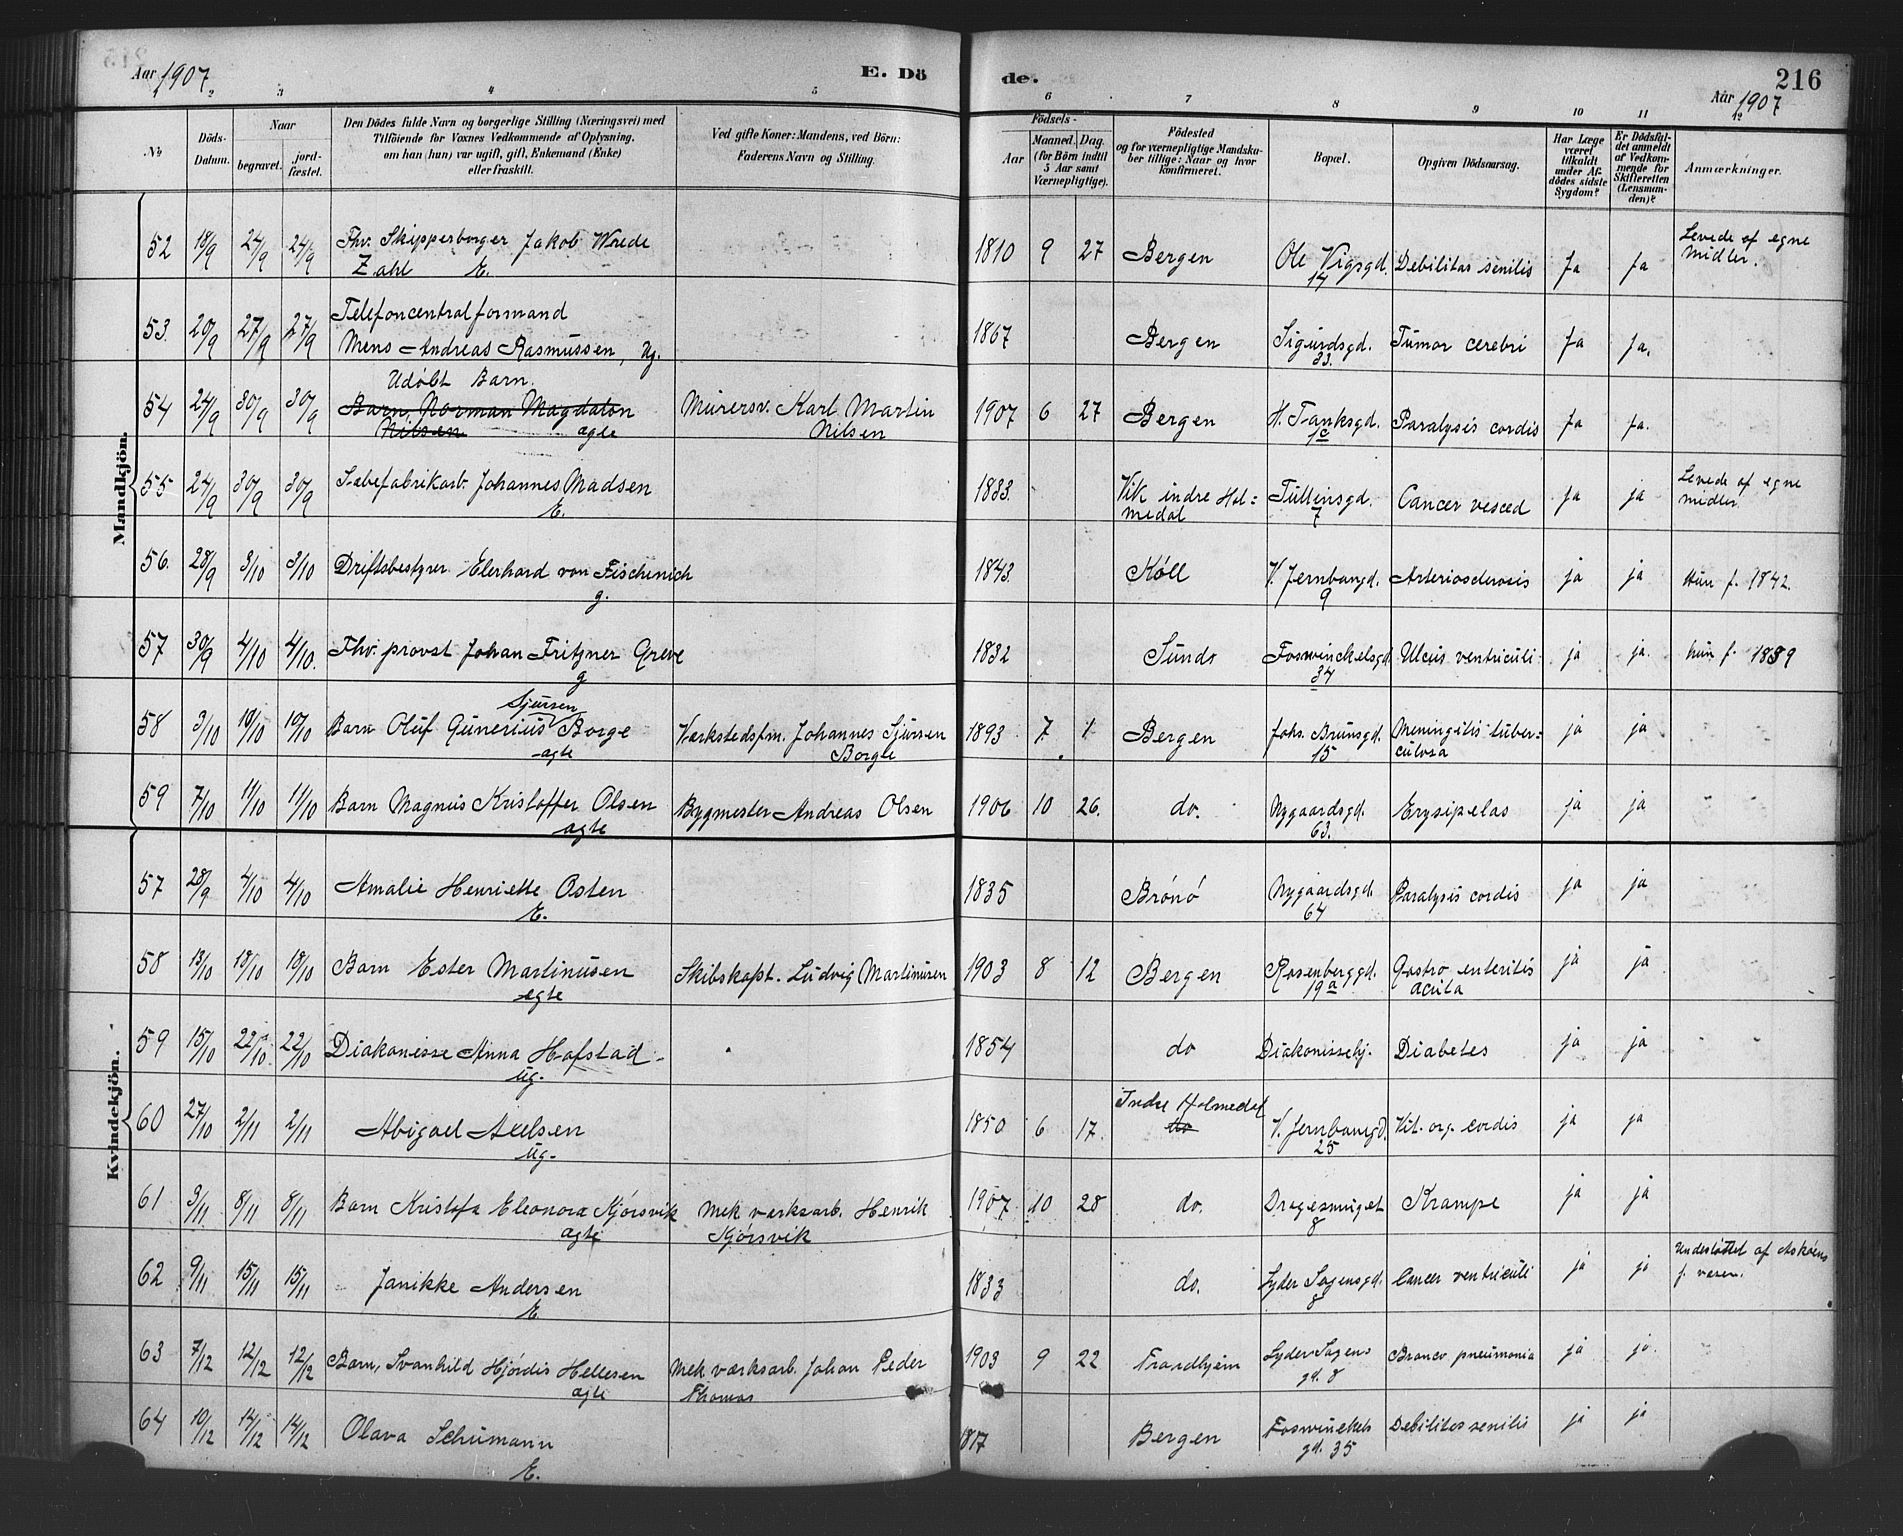 Aar 1907
E. Dö
de.
216
Aar 1907
1 2 3 4 5 6 7 8 9 10 11 12
No
Döds-Datum.
Naar
begravet.
jord-fæstet.
Den Dödes fulde Navn og borgerlige Stilling (Næringsvei) med
Tilföiende for Voxnes Vedkommende af Oplysning,
om han (hun) var ugift, gift, Enkemand (Enke)
eller fraskilt.
Ved gifte Koner: Mandens, ved Börn:
Faderens Navn og Stilling.
Födsels-
Aar
Maaned. Dag.
(for Börn indtil
5 Aar samt
Værnepligtige).
Födested
og for værnepligtige Mandska-
ber tillige: Naar og hvor
konfirmeret.
Bopæl.
Opgiven Dödsaarsag.
Har Læge
været
tilkaldt
under Af-
dödes sidste
Sygdom?
Er Dödsfal-
det anmeldt
af Vedkom-
mende for
Skifteretten
(Lensman-
den)?
Anmærkninger.
Mandkjön.
52 18/9 24/9 24/9 Fhv. Skipperborger Jakob Wrede 1810 9 27 Bergen Ole Vigsgd. Debilitas senilis Ja Ja Levede af egne
Zahl E. 14 Midler.
53. 20/9 27/9 27/9 Telefoncentralformand 1867 Bergen Sigurdsgd. Tumor cerebri Ja Ja.
Mens Andreas Rasmussen, Ug. 33.
Udöbt Barn.
54 24/9 30/9 30/9 Barn, Norman Magdalon Murersv. Karl Martin 1907 6 27 Bergen H. Tanksgd. Paralysis cordis Ja Ja.
Nilsen ægte Nilsen 1c
55 24/9 30/9 30/9 Sæbefabrikarb. Johannes Madsen 1833. Vik indre Hol= Tullinsgd. Cancer vesced Ja ja Levede af egne
E. medal 7 midler
56. 28/9 3/10 3/10 Driftsbestyrer Eberhard von Fischenich 1843. Köll V. Jernbangd. Arteriosclerosis ja ja Hun f. 1842.
g. 9
57 30/9 4/10 4/10. Fhv. provst Johan Fritzner Greve 1832 Sund Foswinckelsgd. Ulcus ventriculi ja ja. hun f. 1839
g 34
Sjursen
58 3/10 10/10 10/10 Barn Oluf Gunerius Borge Værkstedsfm. Johannes Sjursen 1893 7 1 Bergen Johs. Brunsgd. Meningitis tuber= ja ja
ægte Borge 15 culosa
59 7/10 11/10 11/10 Barn Magnus Kristoffer Olsen Bygmester Andreas Olsen 1906 10 26. do. Nygaardsgd. Erysipelas ja ja
ægte 63.
Kvindekjön.
57 28/9 4/10 4/10 Amalie Henriette Osten 1835 Brönö Nygaardsgd. Paralysis cordis ja ja
E. 64
58 13/10 18/10 18/10 Barn Ester Martinusen Skibskapt. Ludvig Martinusen 1903 8 12 Bergen Rosenberggd. Gastro enteritis ja ja
ægte 19a acuta
59 15/10 22/10 22/10 Diakonisse Anna Hofstad 1854 do Diakonissehj. Diabetes ja ja
ug.
60 27/10 2/11 2/11 Abigael Axelsen 1850 6 17. Indre Holmedal V. Jernbangd. Vit. org. cordis ja ja
ug. do 25
61 3/11 8/11 8/11 Barn Kristofa Eleonora Kjörsvik Mek værksarb. Henrik 1907 10 28 do. Dragesmuget Krampe ja ja
ægte Kjörsvik 8
62 9/11 15/11 15/11 Janikke Andersen 1833 do. Lyder Sagensgd. Cancer ventriculi ja ja Understöttet af Asköens
E. 8 f. væsen.
63 7/12 12/12 12/12 Barn, Svanhild Hjördis Hellesen Mek værksarb. Johan Peder 1903 9 22 Trondhjem Lyder Sagens Bronco pneumonia ja ja
ægte Thomas gd. 8
64 10/12 14/12 14/12 Olava Schumann 1817 Bergen Foswinckels Debilitas senilis ja ja
E. gd. 35